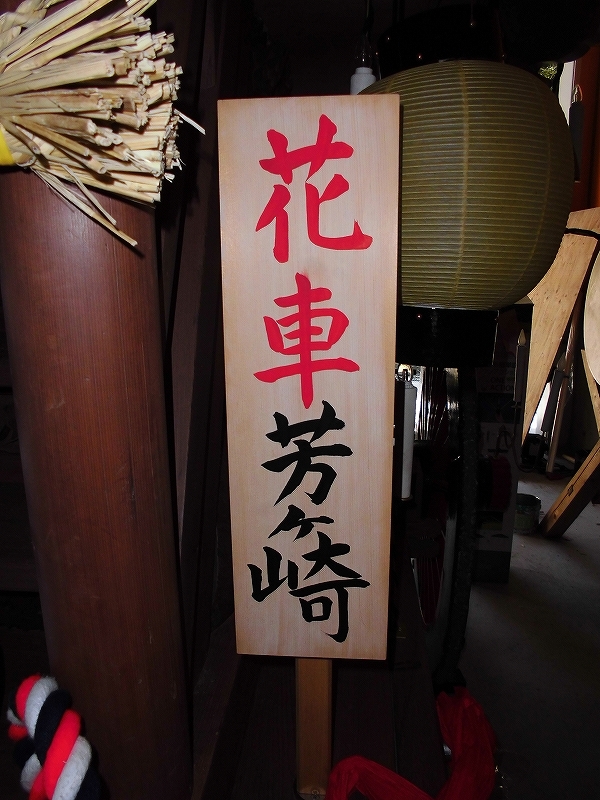 花車芳ヶ崎